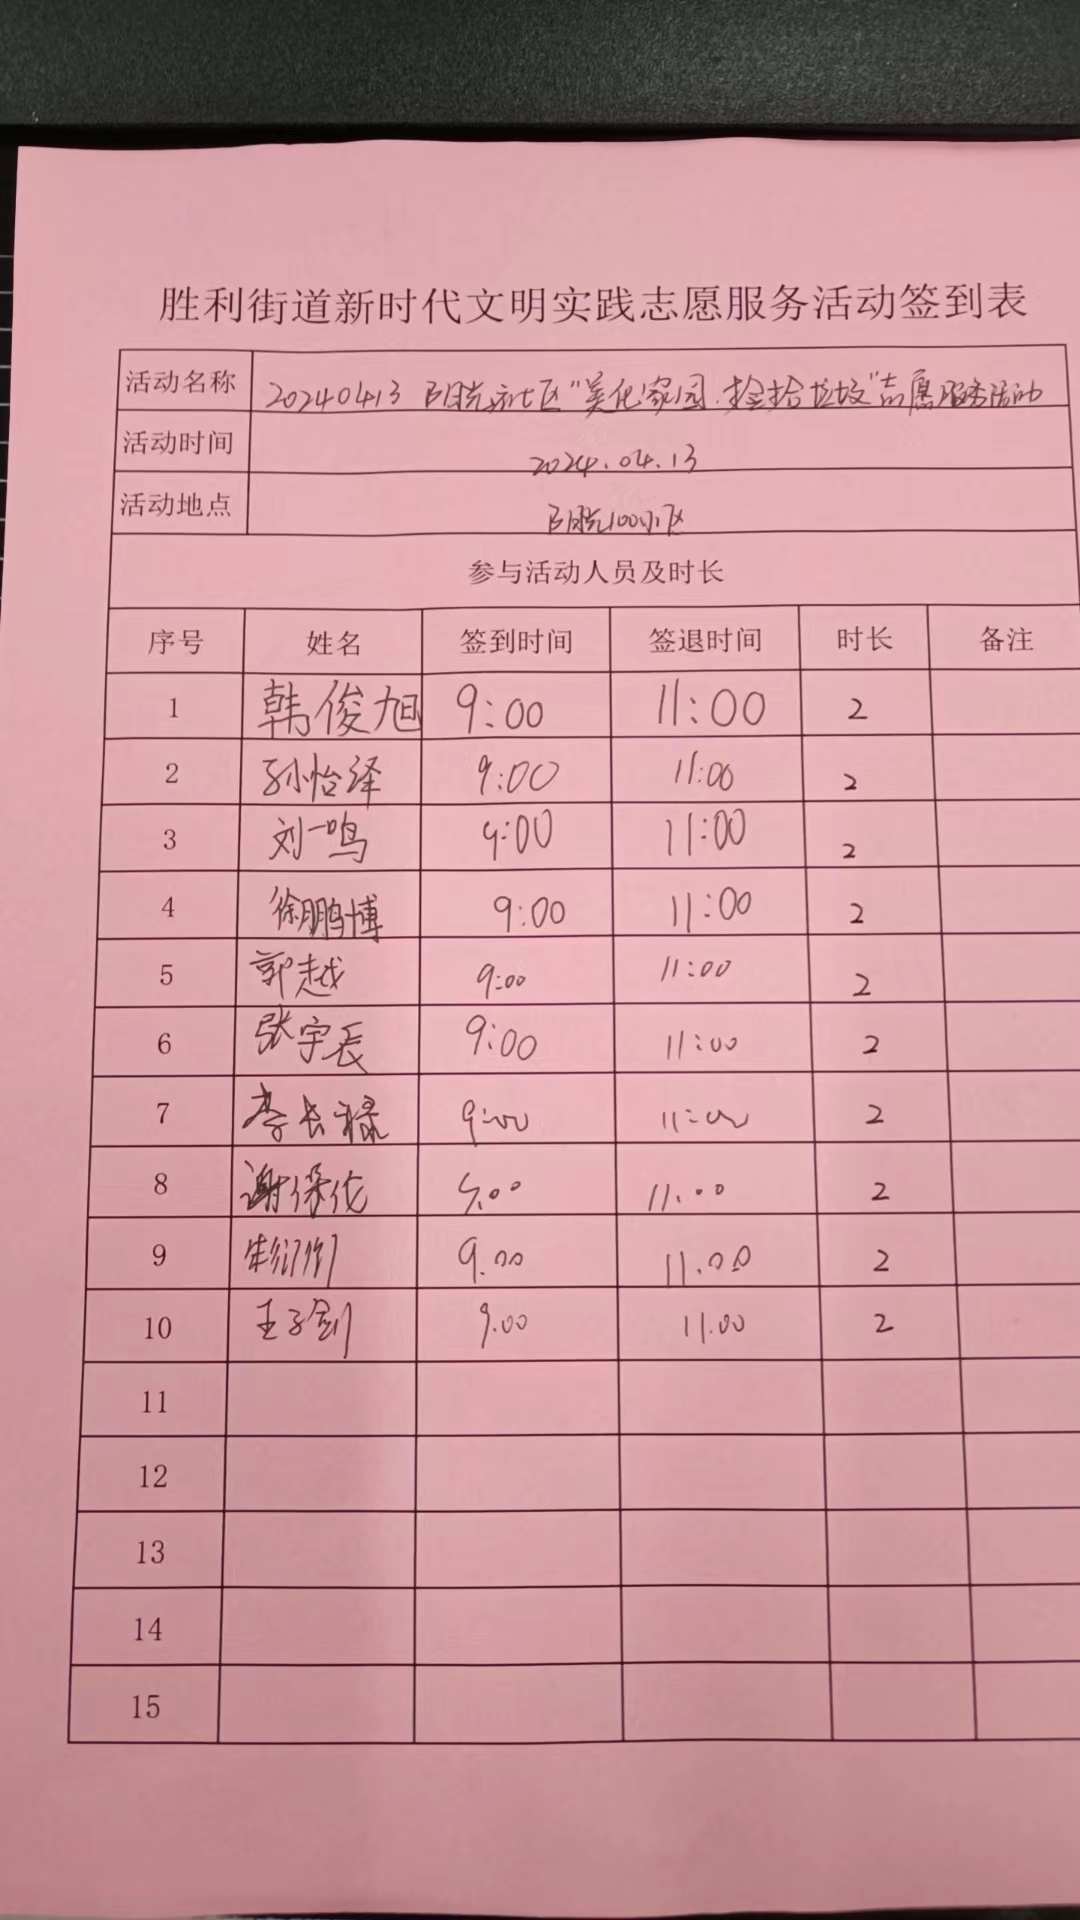 胜利街道新时代文明实践志愿服务活动签到表
活动名称 20240413 社区"美化家园·捡拾垃圾"志愿服务活动
活动时间 2024.04.13
活动地点 100小区
参与活动人员及时长
序号 姓名 签到时间 签退时间 时长 备注
1 韩俊旭 9:00 11:00 2
2 孙怡泽 9:00 11:00 2
3 刘一鸣 9:00 11:00 2
4 徐鹏博 9:00 11:00 2
5 郭越 9:00 11:00 2
6 张宇辰 9:00 11:00 2
7 李长禄 9:00 11:00 2
8 谢保 9.00 11.00 2
9 朱 9.00 11.00 2
10 王子剑 9.00 11.00 2
11
12
13
14
15